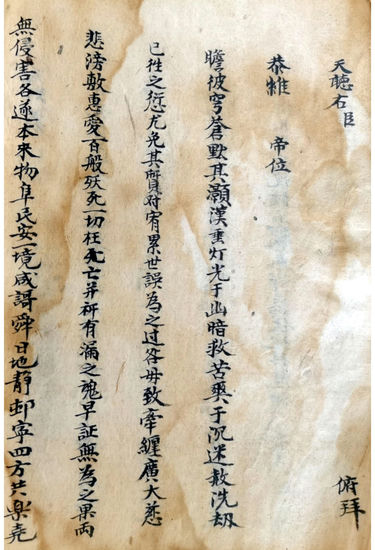 天聽右臣 俯拜
恭維 帝位
瞻彼穹蒼歎其灝漢垂灯光于幽暗救苦爽于沉迷赦洗劫
已徃之愆尤免其質対宥累世誤為之过咎毋致牽纏廣大慈
悲滂敷惠爱百般殀死一切枉死亡并所有漏之魂早証無為之果両
無侵害各遂本來物阜民安一境咸謌舜日地静邨寧四方共楽堯